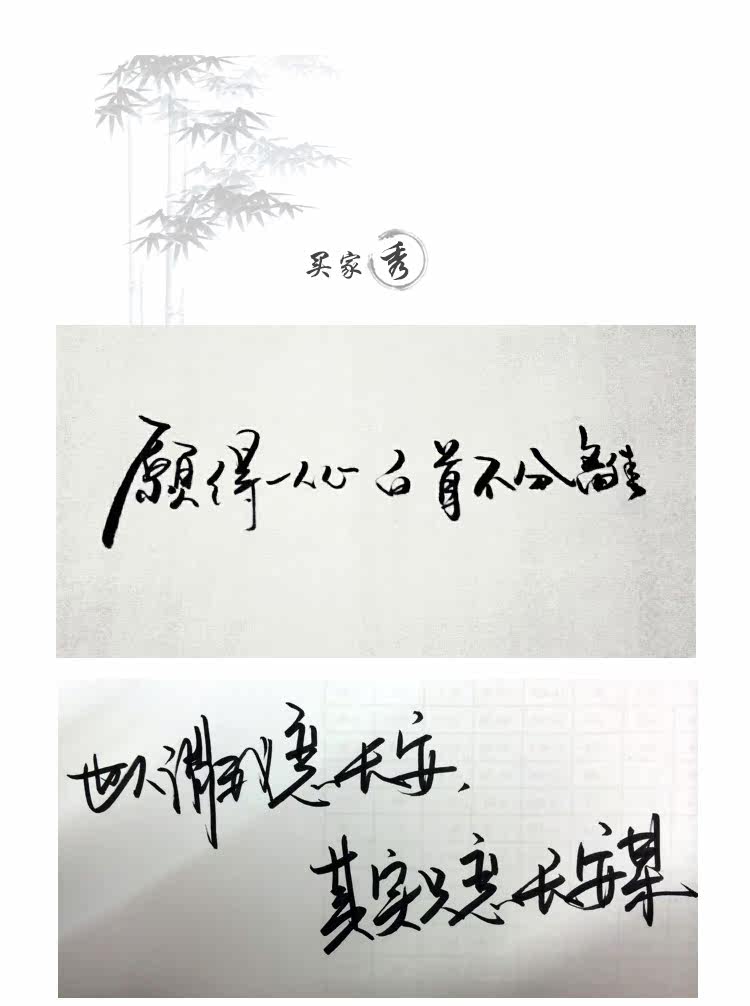 买家秀
愿得一人心 白首不分离
世人谓我恋长安,
其实只恋长安某